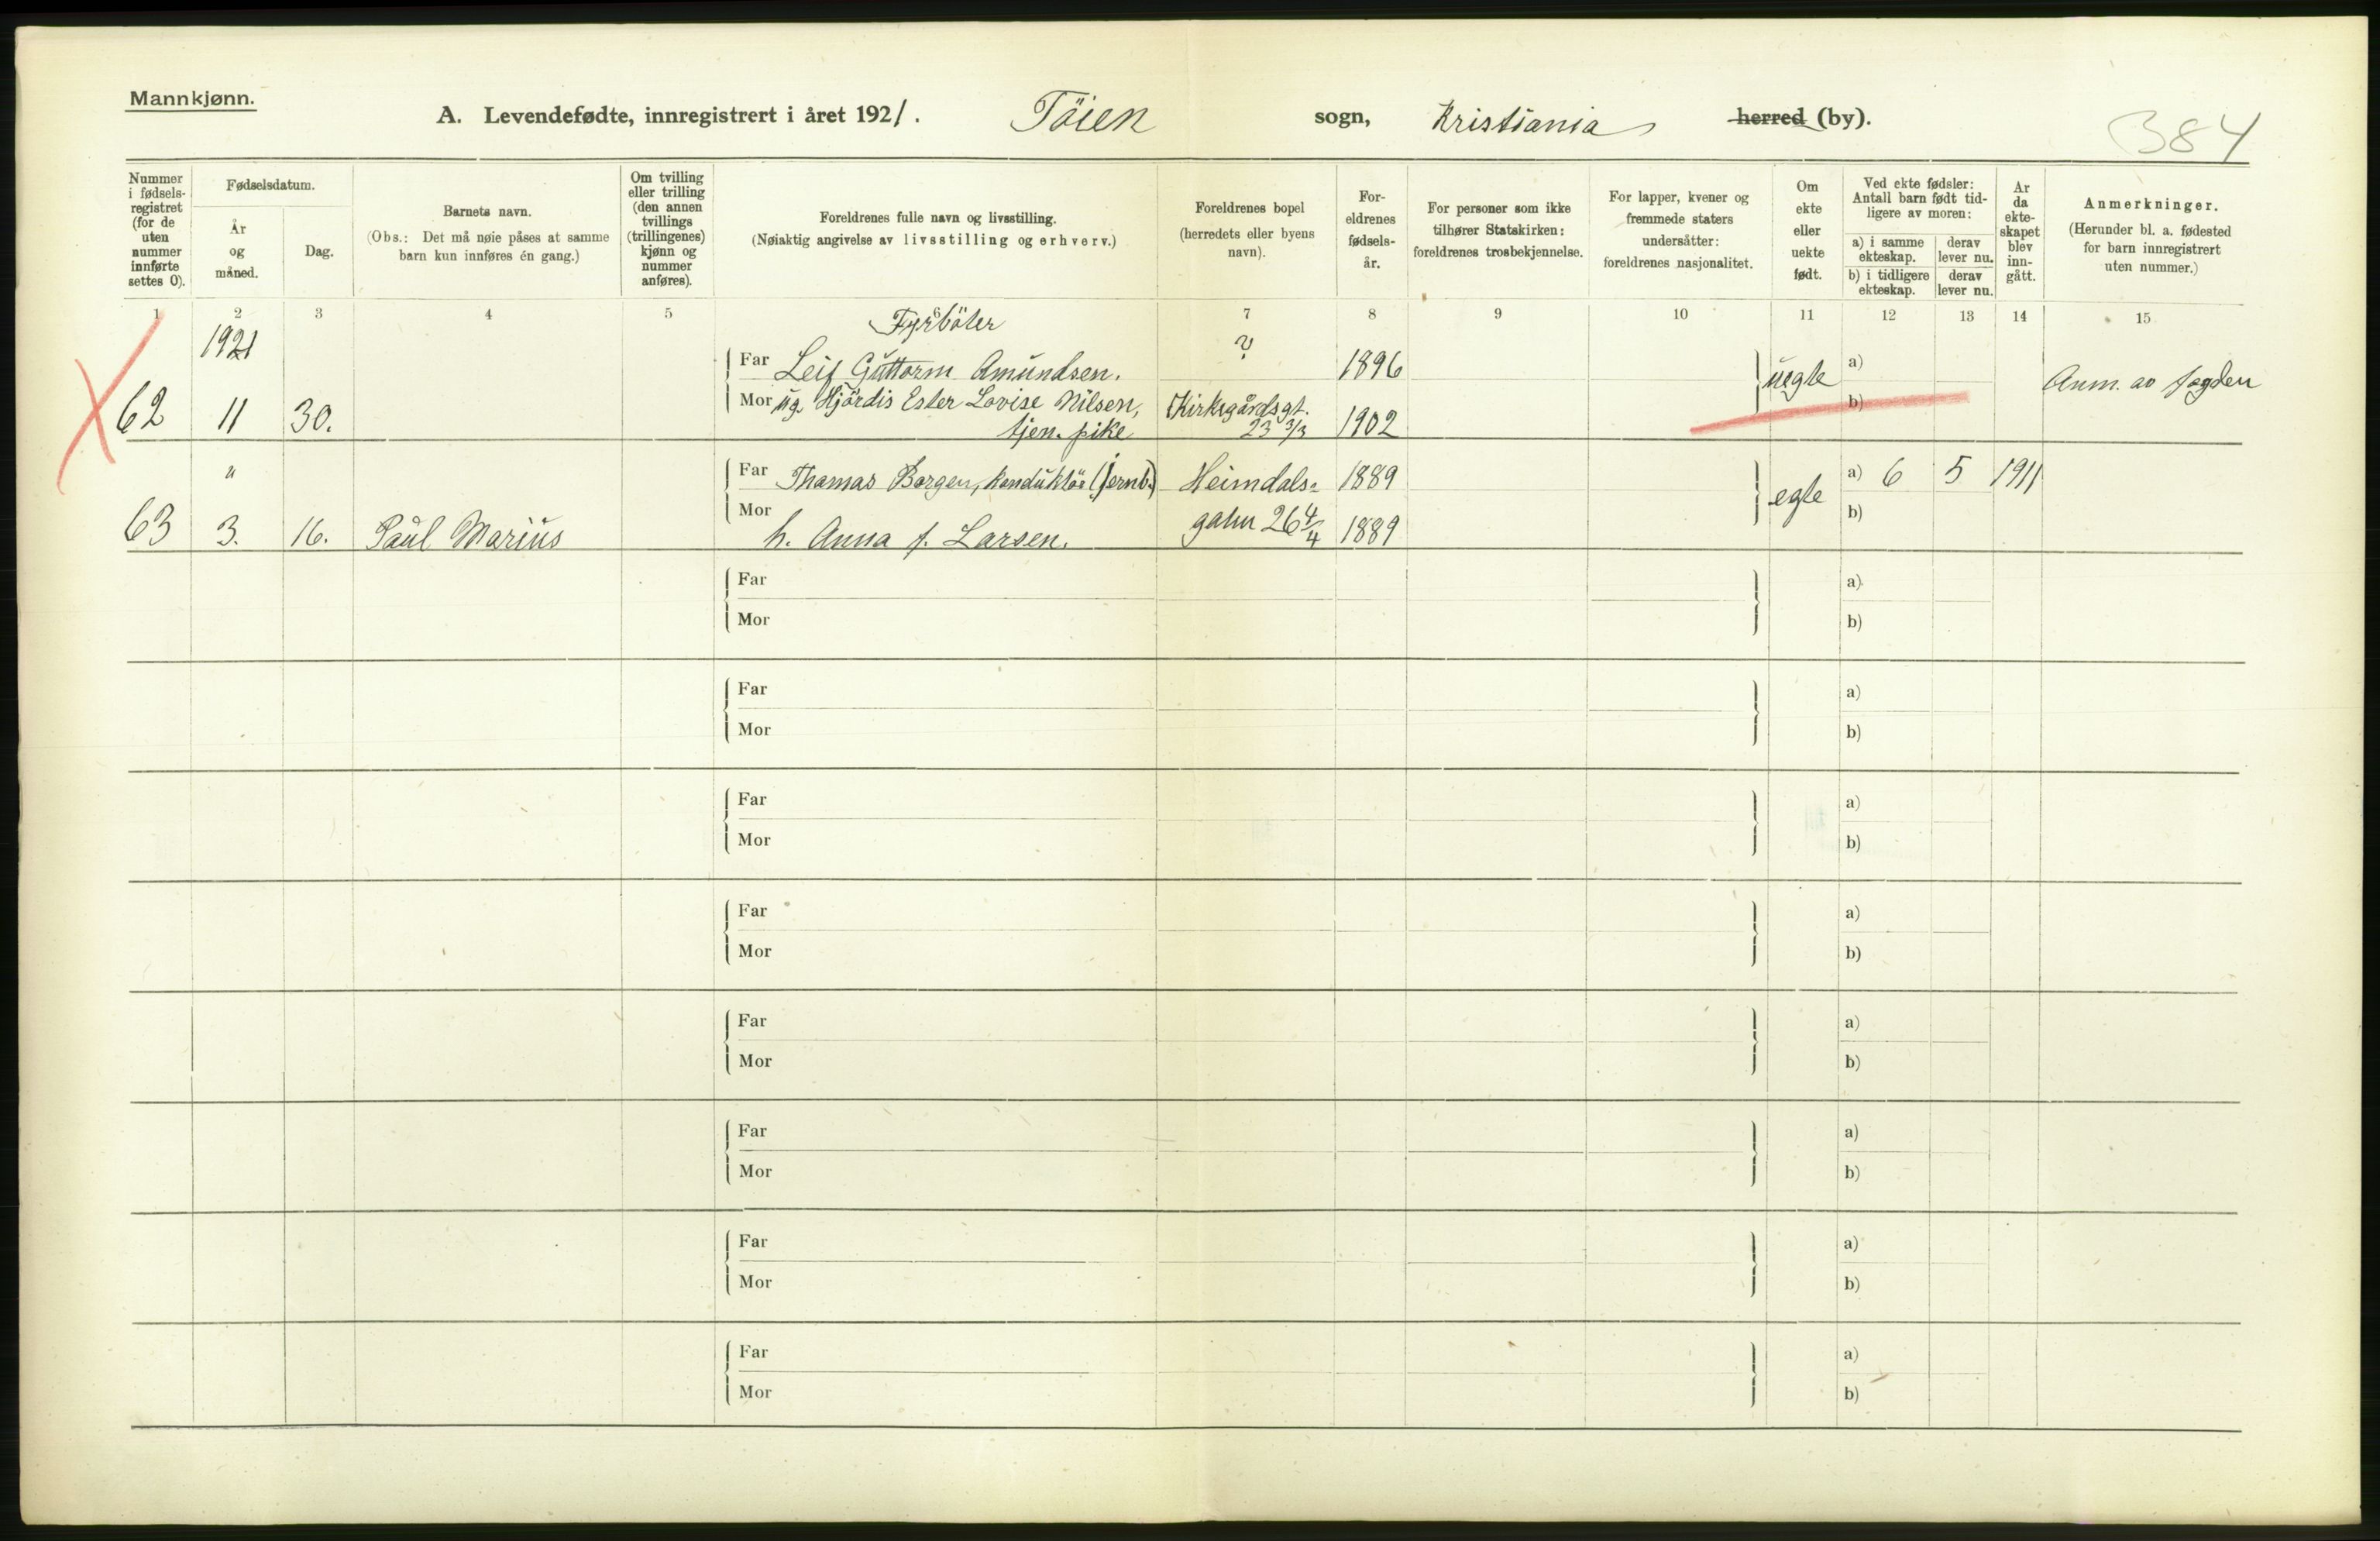 Mannkjønn.
A. Levendefødte, innregistrert i året 1921. Töien sogn, Kristiania herred (by).
384
Nummer i fødselsregistret (for de uten nummer innførte settes 0).
Fødselsdatum.
År og måned.
Dag.
Barnets navn.
(Obs.: Det må nøie påses at samme barn kun innføres én gang.)
Om tvilling eller trilling (den annen tvillings (trillingenes) kjønn og nummer anføres).
Foreldrenes fulle navn og livsstilling.
(Nøiaktig angivelse av livsstilling og erhverv.)
Foreldrenes bopel (herredets eller byens navn).
Foreldrenes fødselsår.
For personer som ikke tilhører Statskirken: foreldrenes trosbekjennelse.
For lapper, kvener og fremmede staters undersåtter: foreldrenes nasjonalitet.
Om ekte eller uekte født.
Ved ekte fødsler: Antall barn født tidligere av moren:
a) i samme ekteskap.
derav lever nu.
b) i tidligere ekteskap.
derav lever nu.
År da ekteskapet blev inngått.
Anmerkninger.
(Herunder bl. a. fødested for barn innregistrert uten nummer.)
1 2 3 4 5 6 7 8 9 10 11 12 13 14 15
1921 Fyrböter ?
Far Leif Guttorm Amundsen. 1896 uegte a) Anm. av fogden
Mor ug. Hjördis Ester Lovise Nilsen, Kirkegårdsgt. b)
62 11 30. tjen. pike 23 3/3 1902
" Far Thomas Borgen, konduktör (jernb.) Heimdals= 1889 egte a) 6 5 1911
Mor b)
63 3. 16. Paul Marius h. Anna f. Larsen. gaten 26 4/4 1889
Far a)
Mor b)
Far a)
Mor b)
Far a)
Mor b)
Far a)
Mor b)
Far a)
Mor b)
Far a)
Mor b)
Far a)
Mor b)
Far a)
Mor b)